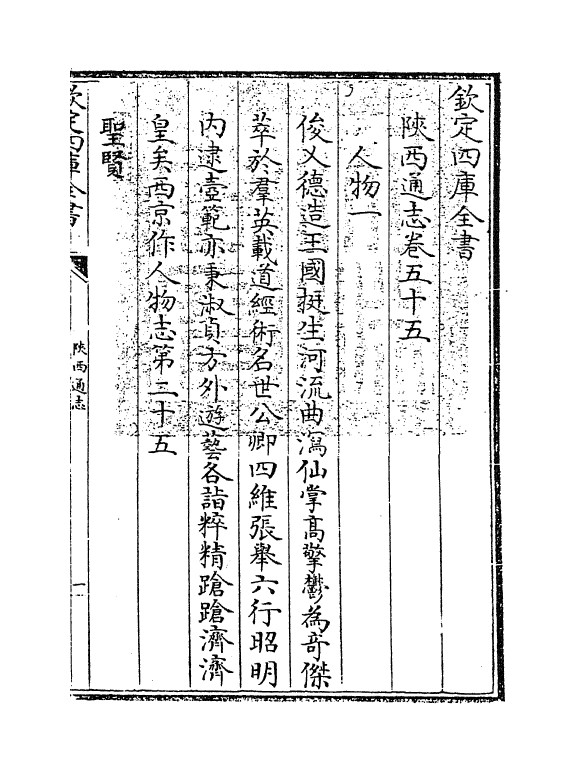 欽定四庫全書
陝西通志卷五十五
人物一
俊乂德造王國挺生河流曲瀉仙掌高擎鬱為奇傑
萃於羣英載道經術名世公卿四維張舉六行昭明
内逮壼範亦秉淑貞方外遊藝各詣粹精蹌蹌濟濟
皇矣西京作人物志第三十五
聖賢
欽定四庫全書
陝西通志
一